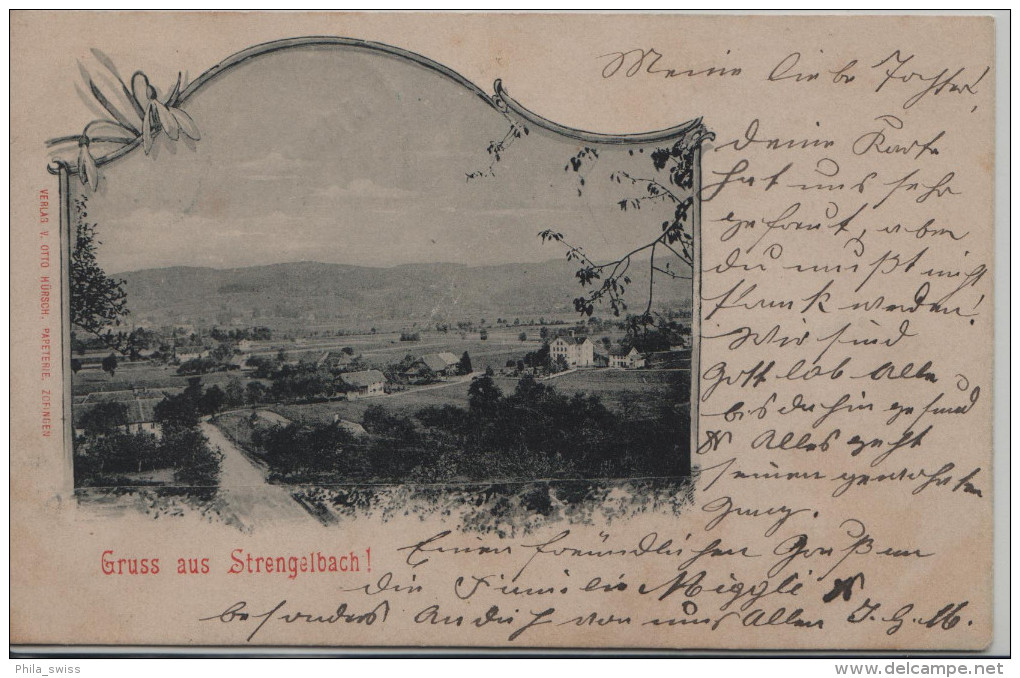 Meine liebe Tochter!
Deine Karte
hat uns sehr
gefreut, aber
du mußt nicht
krank werden!
Wir sind
Gott lob Alle
bis dahin gesund
& Alles geht
seinen gewohnten
Gang.
Einen freundlichen Gruß an
die Familie Miggli &
besonders An dich von uns Allen J. G. M.
Gruss aus Strengelbach!
VERLAG V. OTTO HÜRSCH, PAPETERIE, ZOFINGEN
Phila_swiss
www.delcampe.net